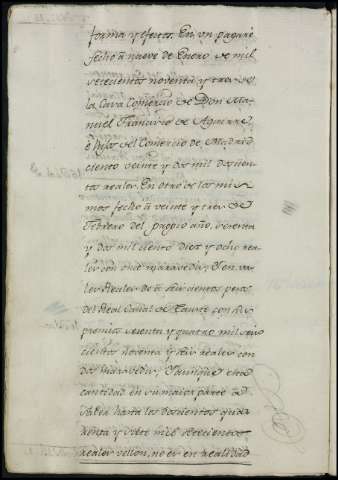 forma y efecto. En un pagaré
fecho à nueve de Enero de mil
setecientos noventa y tres de
la Casa Comercio de Don Ma-
nuel Francisco de Aguirre
é hijos del Comercio de Madrid
ciento veinte y dos mil doscien-
tos reales. En otro de los mis-
mos fecho à veinte y tres de
Febrero del propio año, setenta
y dos mil ciento diez y ocho rea-
les con once maravedis; Y en va-
les Reales de à seiscientos pesos
del Real Canal de Tauste con sus
premios sesenta y quatro mil seis-
cientos noventa y seis reales con
dos maravedis; Y aunque esta
cantidad en su maior parte
hasta los doscientos quar-
renta y siete mil setecientos
reales vellon, no es en realidad